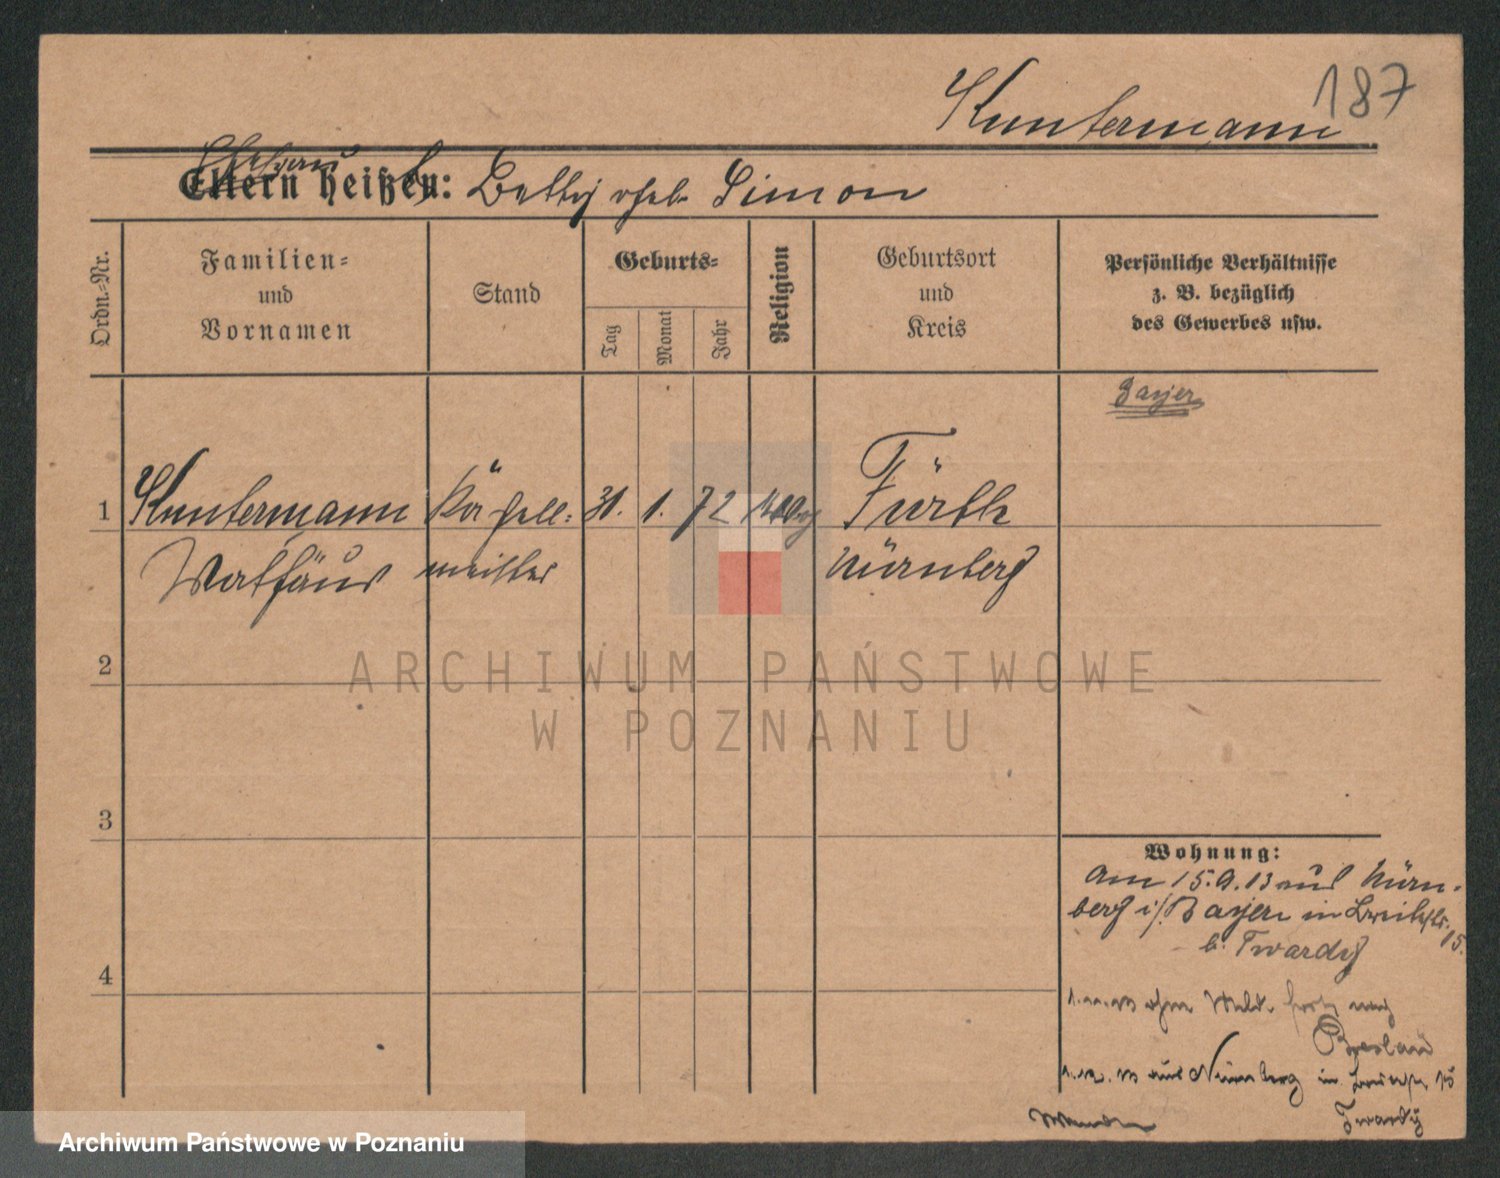 187
Kuntermann
Ehefrau
Eltern heißen: Betty geb. Simon
Ordn.=Nr.
Familien=
und
Vornamen
Stand
Geburts=
Tag
Monat
Jahr
Religion
Geburtsort
und
Kreis
Persönliche Verhältnisse
z. B. bezüglich
des Gewerbes usw.
Bayer
1 Kuntermann 31. 1. 72 Fürth
meister Nürnberg
2
3
4
Wohnung:
am 15.9.13 aus Nürn-
berg i/Bayern in Breitestr. 15.
b. Twardy
ohne Meld. fort nach
Breslau
aus Nürnberg in 15
Twardy
Wenden
ARCHIWUM PAŃSTWOWE
W POZNANIU
Archiwum Państwowe w Poznaniu